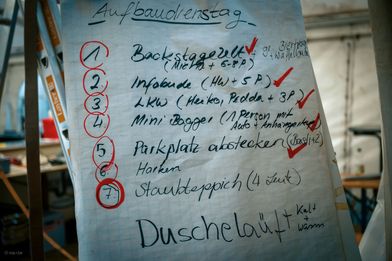 Aufbaudienstag
1 Backstagezelt + 
(Heinz + 5 P.)
2 Infobude (HW + 5 P.)
3 LKW (Heiko, Pedda + 3 P.)
4 Mini Bagger (1 Person mit
Auto + Anhänger
5 Parkplatz abstecken
6 Harken
7 Staubteppich (4 Leute)
Duscheläuft + Kalt +
warm